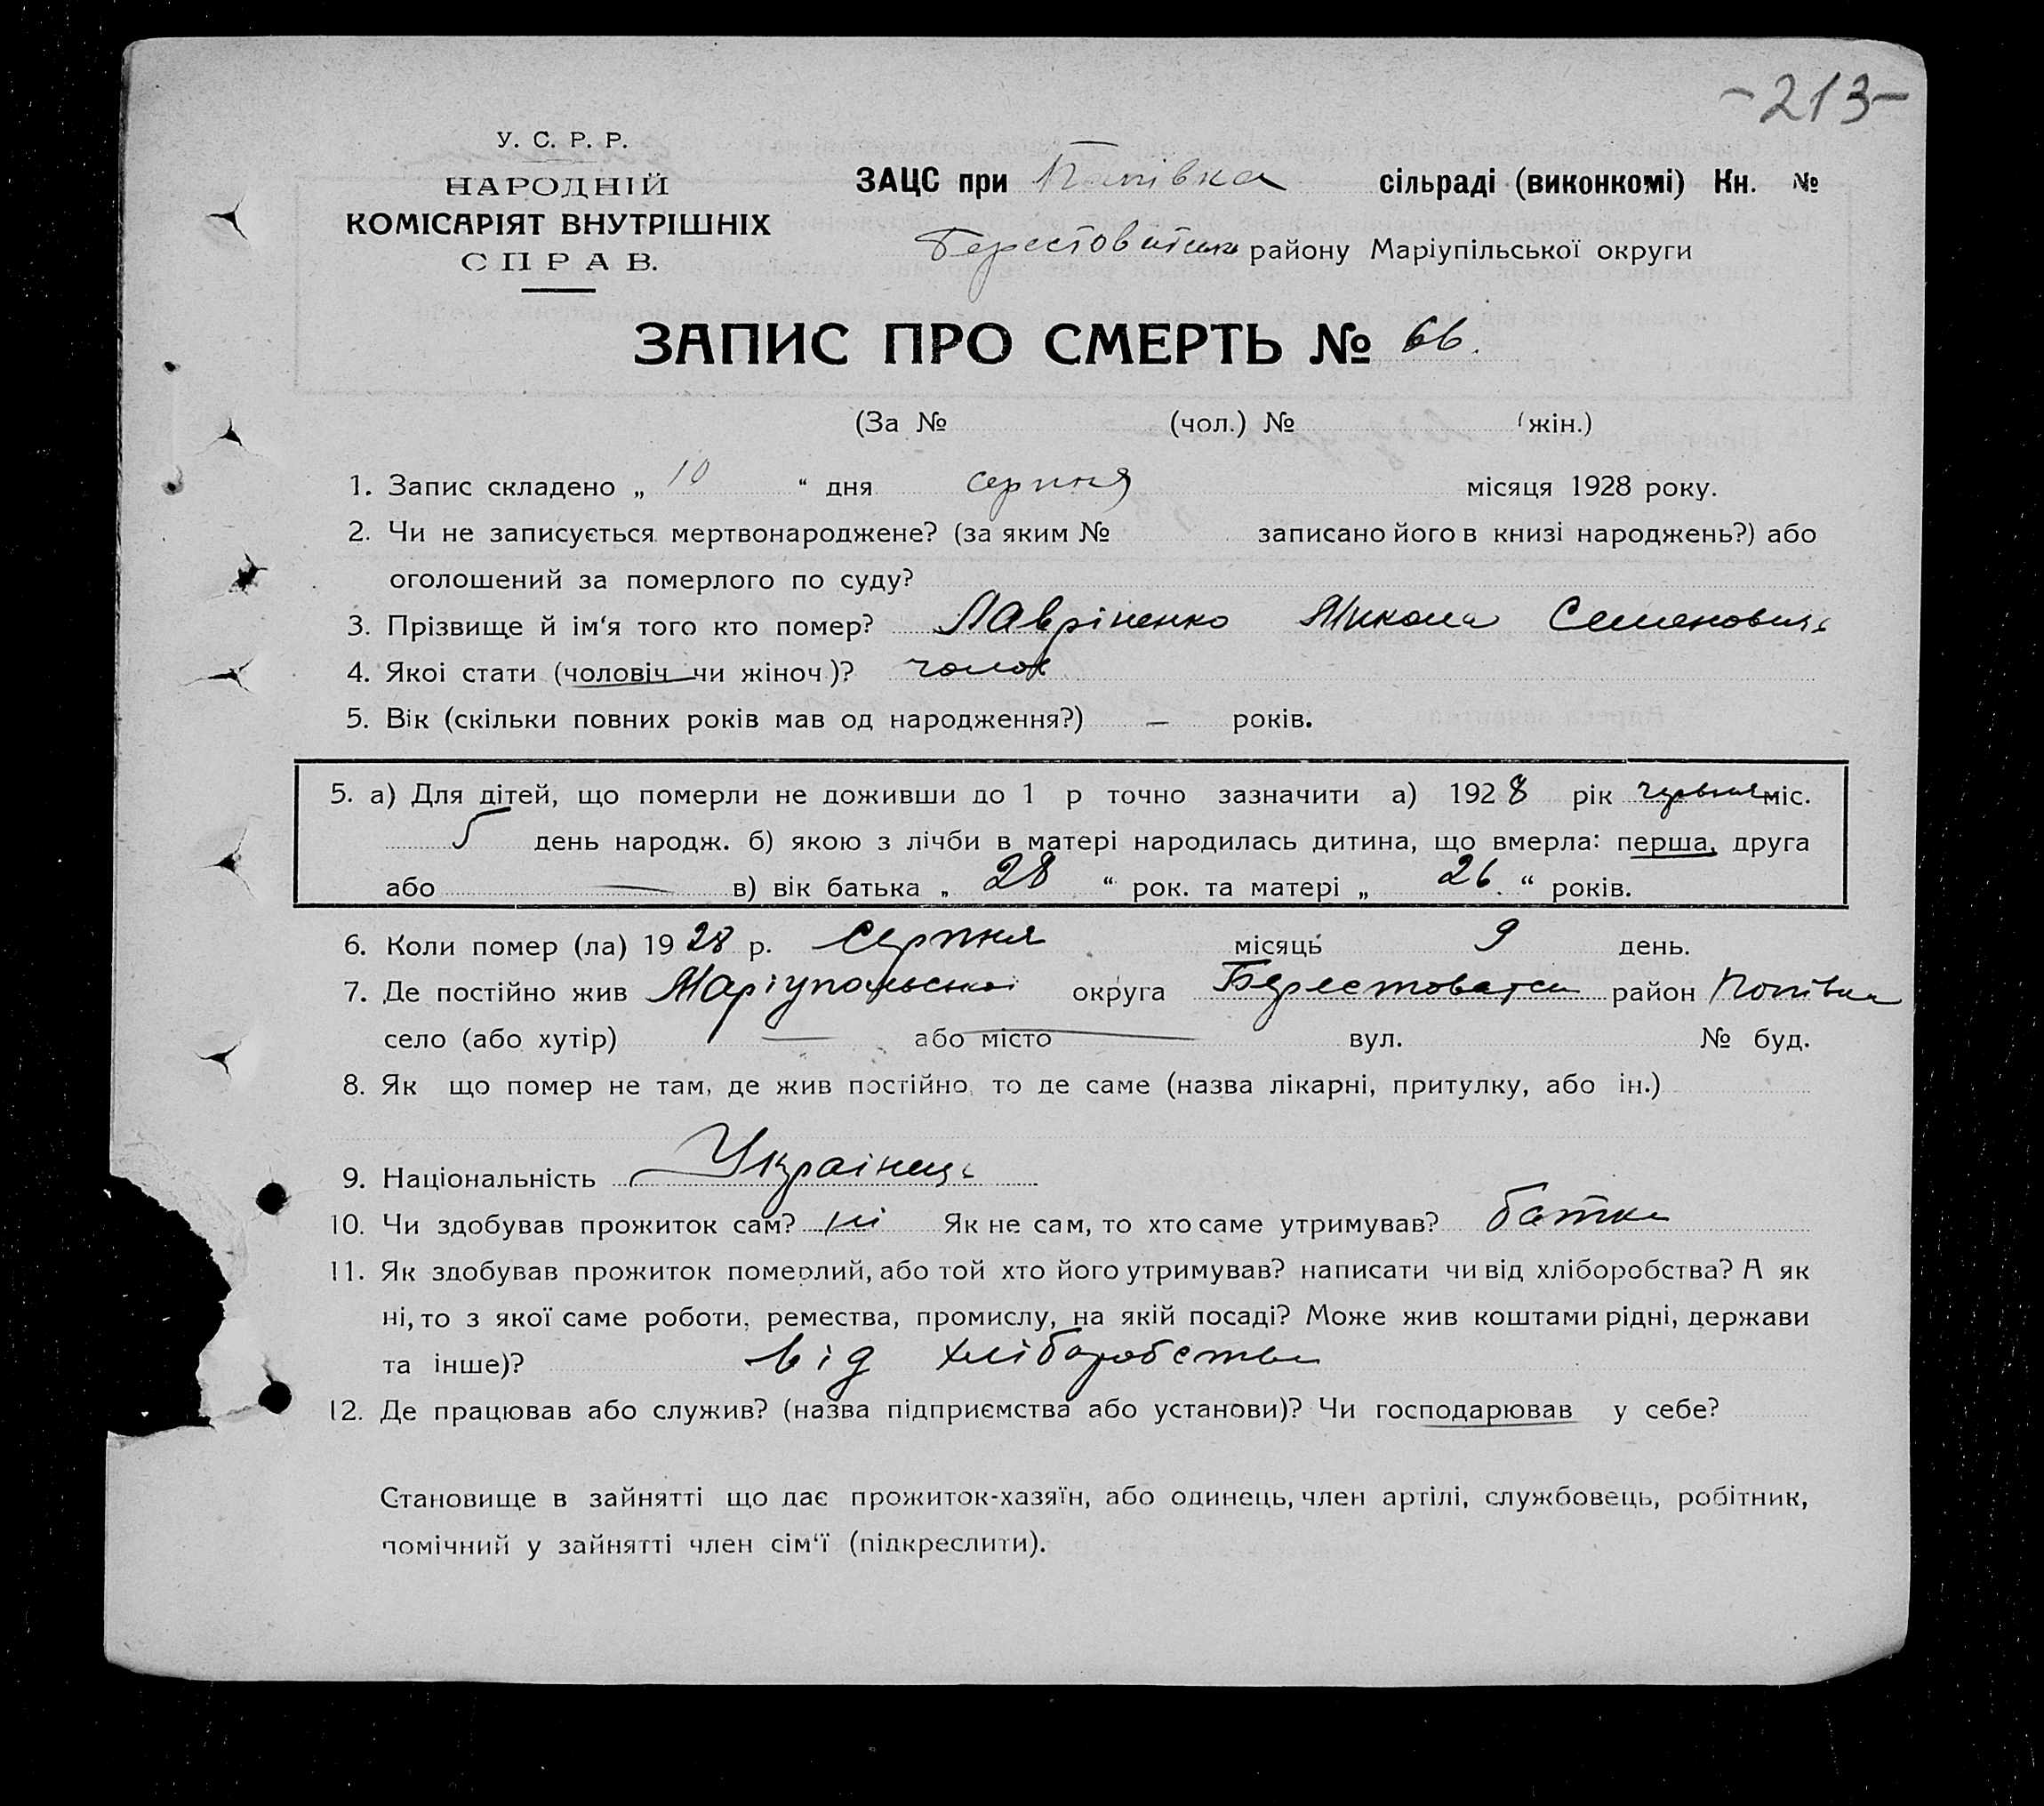 -213-
У. С. Р. Р.
НАРОДНІЙ
КОМІСАРІЯТ ВНУТРІШНІХ
СПРАВ.
ЗАЦС при Попівка сільраді (виконкомі) Кн. №
району Маріупільської округи
ЗАПИС ПРО СМЕРТЬ № 66.
(За № (чол.) № (жін.)
1. Запис складено „ 10 “ дня серпня місяця 1928 року.
2. Чи не записується мертвонароджене? (за яким № записано його в книзі народжень?) або
оголошений за померлого по суду?
3. Прізвище й ім‘я того кто помер? Лавріненко Микола Семенович
4. Якоі стати (чоловіч чи жіноч)? чолов
5. Вік (скільки повних років мав од народження?) – років.
5. а) Для дітей, що померли не доживши до 1 р точно зазначити а) 1928 рік червня міс.
5 день народж. б) якою з лічби в матері народилась дитина, що вмерла: перша, друга
або — в) вік батька „ 28 “ рок. та матері „ 26. “ років.
6. Коли помер (ла) 1928 р. Серпня місяць 9 день.
7. Де постійно жив Маріупольськоі округа Берестоватськ район Попівка
село (або хутір) — або місто — вул. № буд.
8. Як що помер не там, де жив постійно, то де саме (назва лікарні, притулку, або ін.)
9. Національність Украінець
10. Чи здобував прожиток сам? ні Як не сам, то хто саме утримував? батько
11. Як здобував прожиток померлий, або той хто його утримував? написати чи від хліборобства? А як
ні, то з якої саме роботи, ремества, промислу, на якій посаді? Може жив коштами рідні, держави
та інше)? від хліборобства
12. Де працював або служив? (назва підприємства або установи)? Чи господарював у себе?
Становище в зайнятті що дає прожиток-хазяїн, або одинець, член артілі, службовець, робітник,
помічний у зайнятті член сім‘ї (підкреслити).